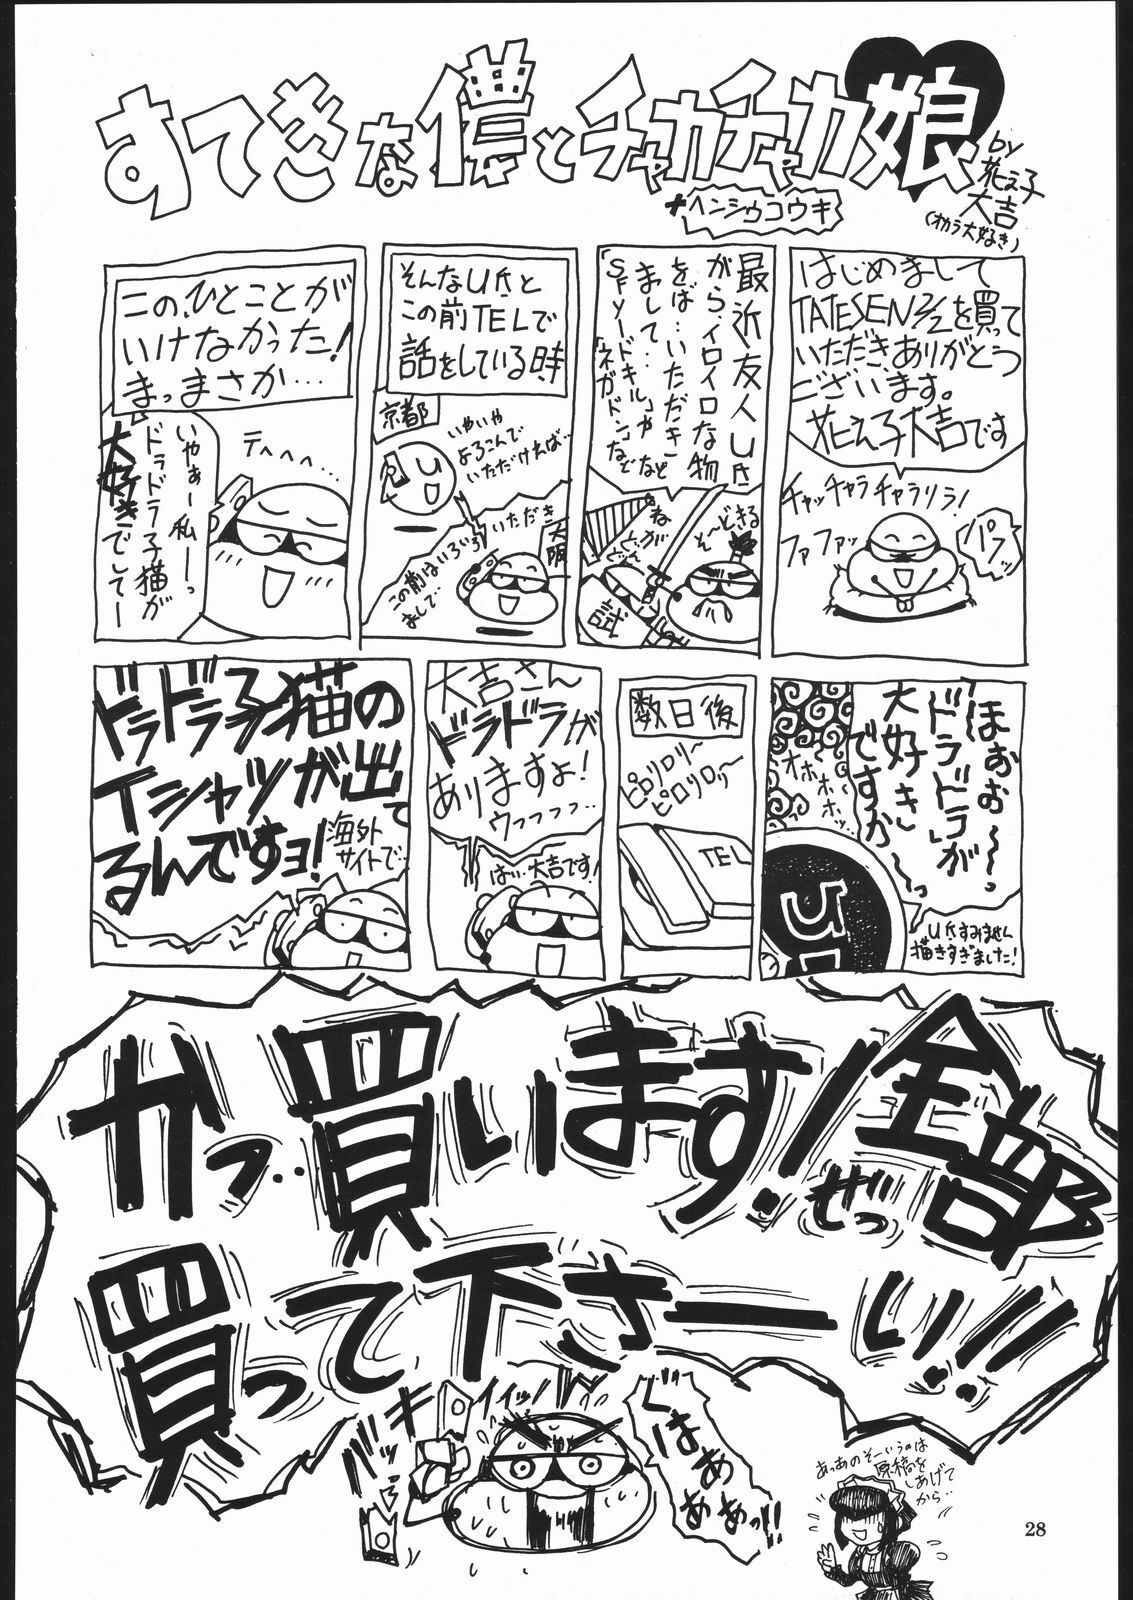 すてきな僕とチャカチャカ娘
+ヘンシュウコウキ
by
花え子
大吉
(オカラ大好き)
はじめまして
TATESEN 2/2を買って
いただきありがとう
ございます。
花え子大吉です
チャッチャラ
チャラリラ!
ファファッ
パフッ
最近友人U氏
がらイロイロな物
をば…いただき
まして…
「SFソードキル」や
「ネガドン」など
など
そ〜どきる
ねがどん
試
そんなU氏と
この前TELで
話をしている時、
京都
U
いやいや
よろこんで
いただければ…
大阪
この前はいろいろ
いただき
まして…
この、ひとことが
いけなかった!
まっまさか…
テヘヘ…
いやぁー私ーっ
ドラドラ子猫が
大好きでしてー
ほぉお〜〜っ
「ドラドラ」が
大好き
ですか〜っ
オホホホホッ…
U氏すみません
描きすぎました!
数日後
ピロリロリ〜
ピロリロリ〜
TEL
大吉さん
ドラドラが
ありますよ!
ウフフフフ…
はい…大吉です!
ドラドラ子猫の
Tシャツが出て
るんですヨ!
海外
サイトで…
かっ…買います!ぜっ全部
買って下さーい!!
イイッ!
バキバキッ
ぐはぁあ
ああっ!!
あっあのそーいうのは
原稿を
しあげて
から…
28